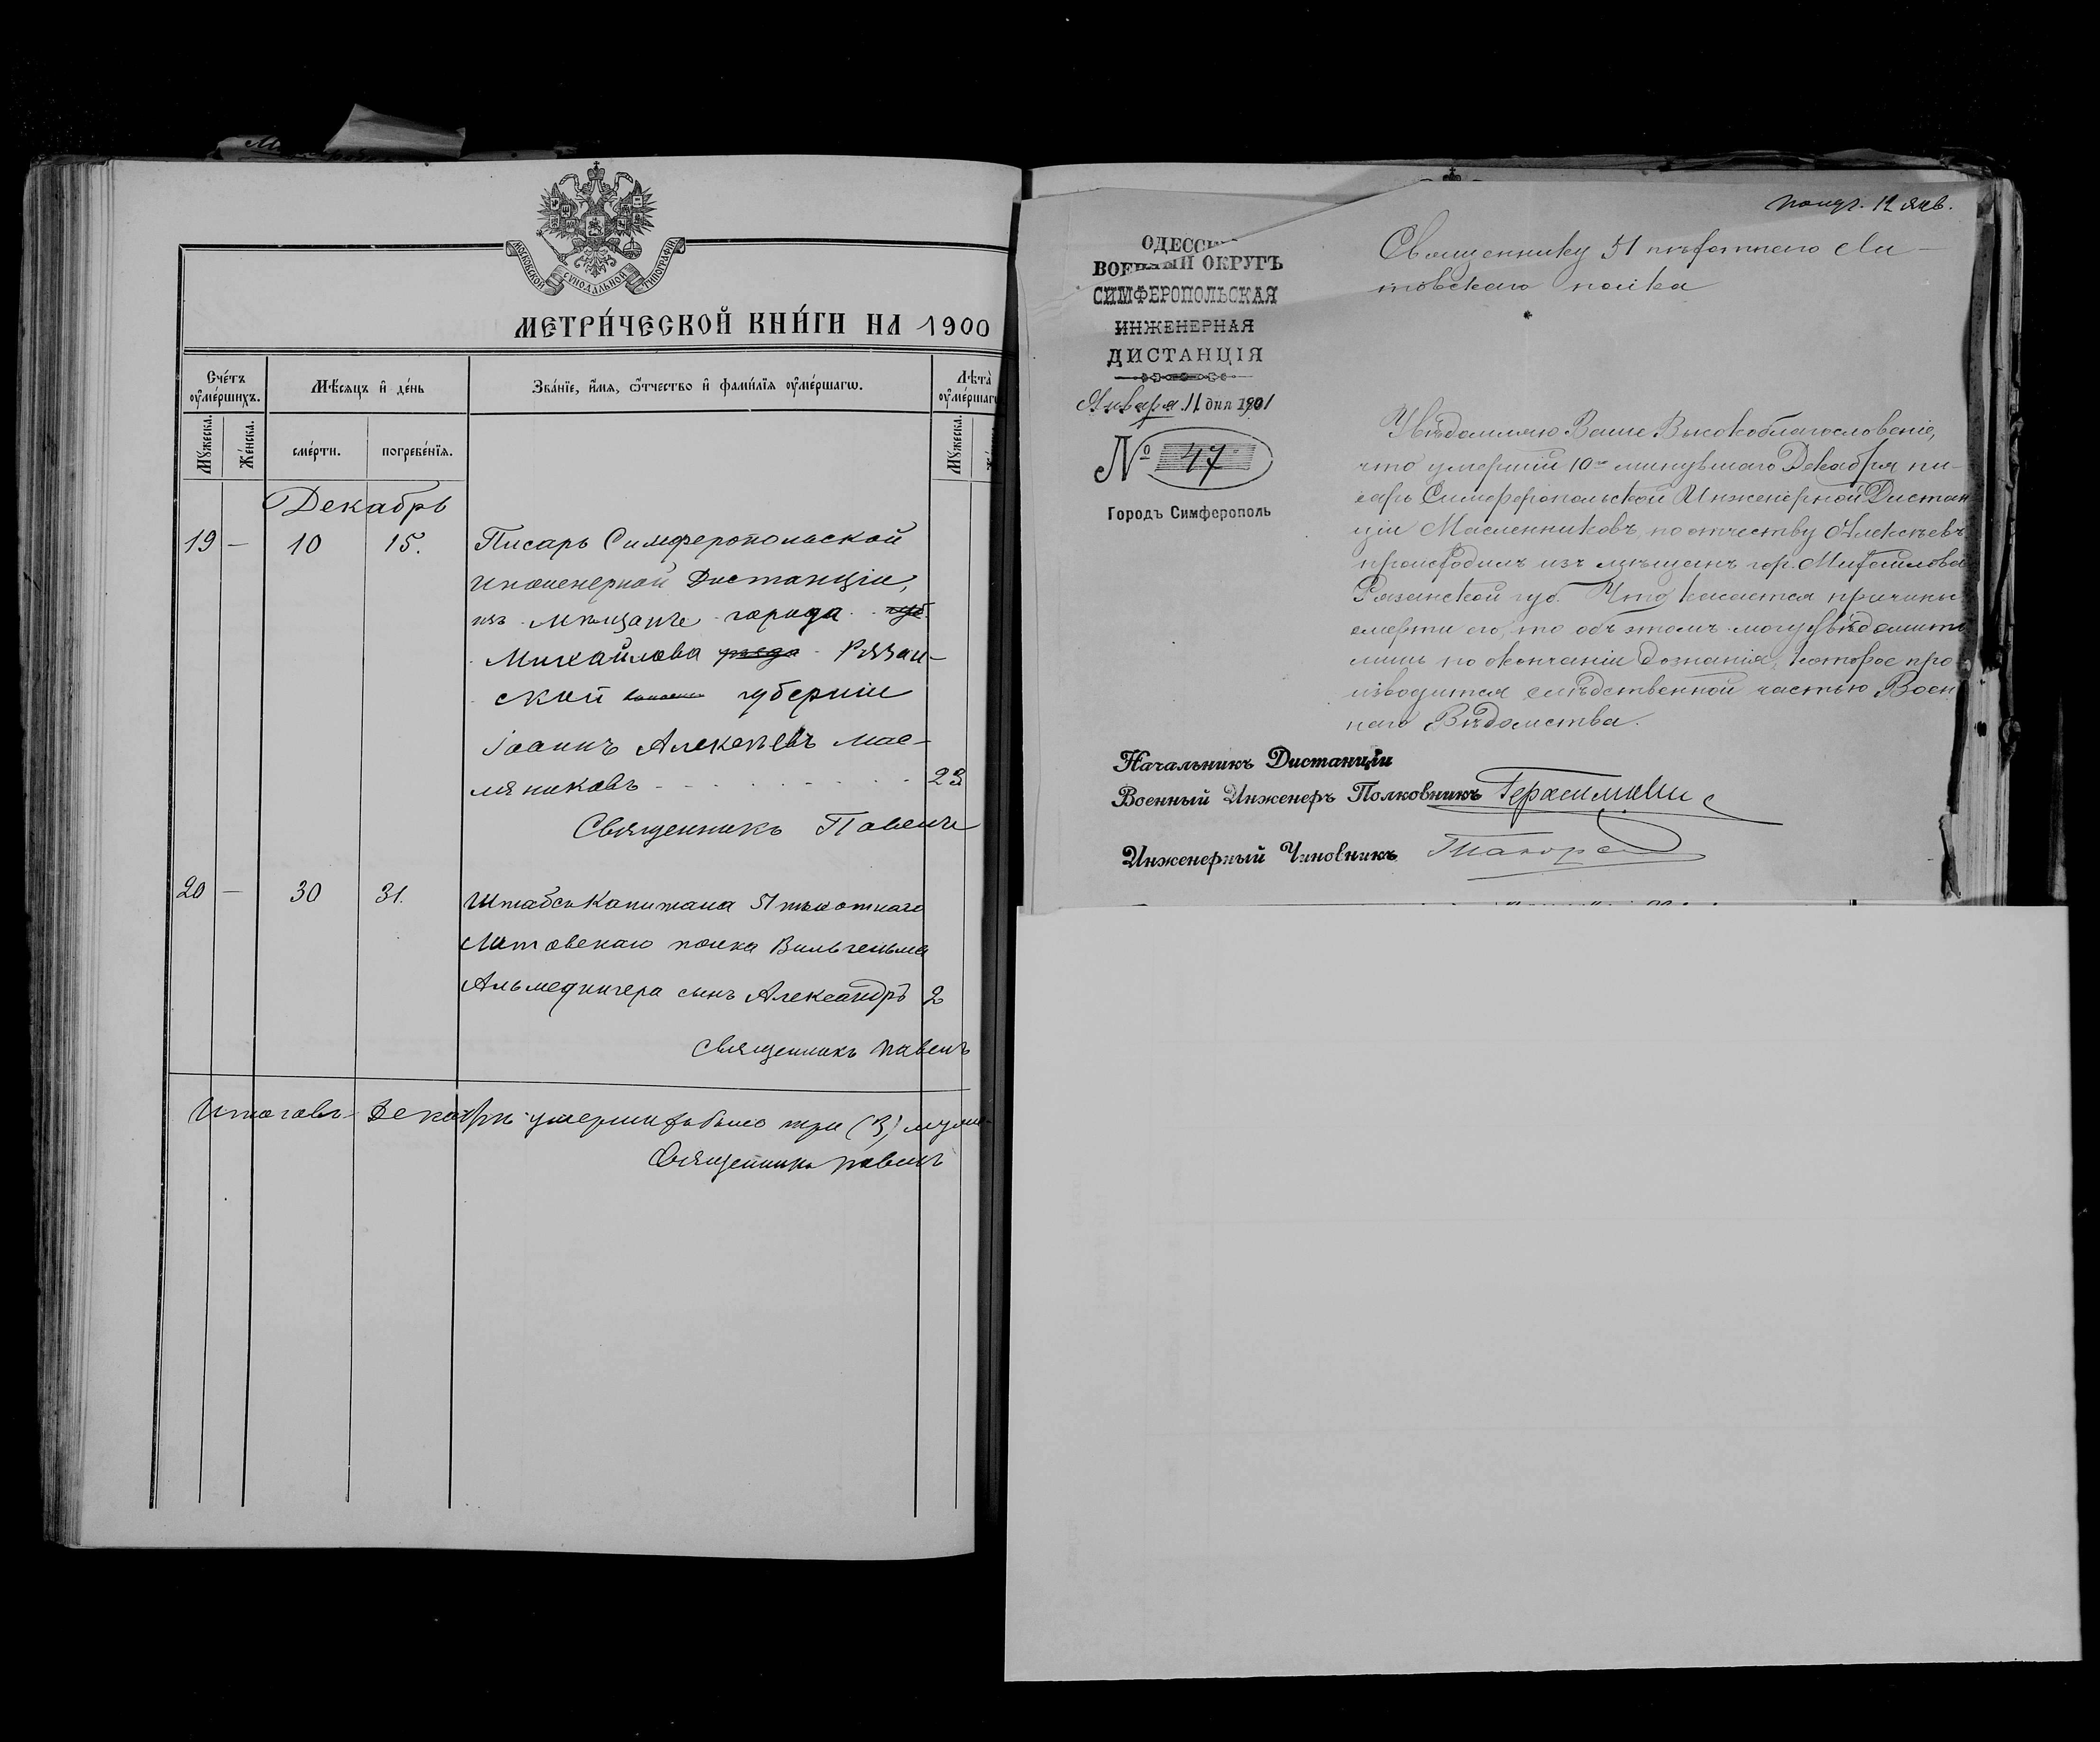 МОСКОВСКОЙ СѴНОДАЛЬНОЙ ТИПОГРАФІИ
МЕТРИ́ЧЕСКОЙ КНИ́ГИ НА 1900
Сче́тъ оу҆ме́ршихъ.
Мѣ́сяцъ и҆ де́нь
Зва́нїе, и҆́мя, ѻ҆́тчество и҆ фами́лїя оу҆ме́ршагѡ.
Лѣта̀ оу҆ме́ршагѡ
Мꙋ́жеска.
Же́нска.
сме́рти.
погребе́нїя.
Мꙋ́жеска.
Декабрь
19 — 10 15. Писарь Симферопольской
Инженерной Дистанціи,
изъ мѣщанъ города губ.
Михайлова Рязан-
ской губерніи
Іоаннъ Алексѣевъ Мас-
ляниковъ 23
Священникъ Павелъ
20 — 30 31. Штабсъ Капитана 51 пѣхотнаго
Литовскаго полка Вильгельма
Альмедингера сынъ Александръ 2
Священникъ Павелъ
Итого въ Декабрѣ умершихъ было три (3) муже-
Священникъ Павелъ
получ. 12 янв.
ОДЕССК
ВОЕННЫЙ ОКРУГЪ
СИМФЕРОПОЛЬСКАЯ
ИНЖЕНЕРНАЯ
ДИСТАНЦІЯ
Января 11 дня 1901
№ 47
Городъ Симферополь
Священнику 51 пѣхотнаго Ли-
товскаго полка
Увѣдомляю Ваше Высокоблагословеніе,
что умершій 10го минувшаго Декабря пи-
сарь Симферопольской Инженерной Дистан
ціи Масленниковъ, по отчеству Алексѣевъ
происходилъ изъ мѣщанъ гор. Михайлова
Рязанской губ. Что касается причины
смерти его, то объ этомъ могу увѣдомить
лишь по окончаніи дознанія, которое про
изводится слѣдственной частью Воен
наго Вѣдомства.
Начальникъ Дистанціи
Военный Инженеръ Полковникъ
Инженерный Чиновникъ